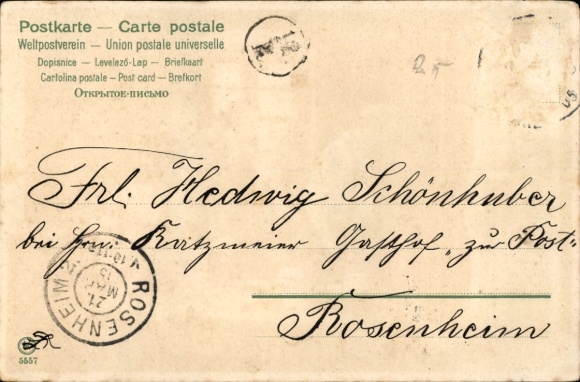 Postkarte — Carte postale
Weltpostverein — Union postale universelle
Dopisnice — Levelező-Lap — Briefkaart
Cartolina postale — Post card — Brefkort
Открытое-письмо
25
Frl. Hedwig Schönhuber
bei Hrn. Katzmeier Gasthof „zur Post"
Rosenheim
ROSENHEIM 2.
21.
MAR
5557